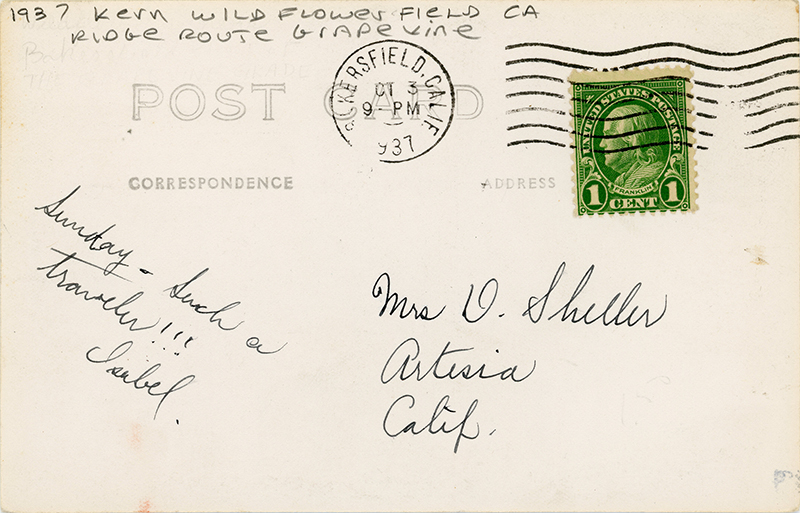 1937 Kern WILD FLOWER FIELD CA
RIDGE ROUTE GRAPEVINE
POST CARD
BAKERSFIELD, CALIF.
OCT 3
9 - PM
1937
UNITED STATES POSTAGE
FRANKLIN
1 CENT 1
CORRESPONDENCE
ADDRESS
Sunday - Such a
traveler!!!
Isabel.
Mrs D. Sheller
Artesia
Calif.